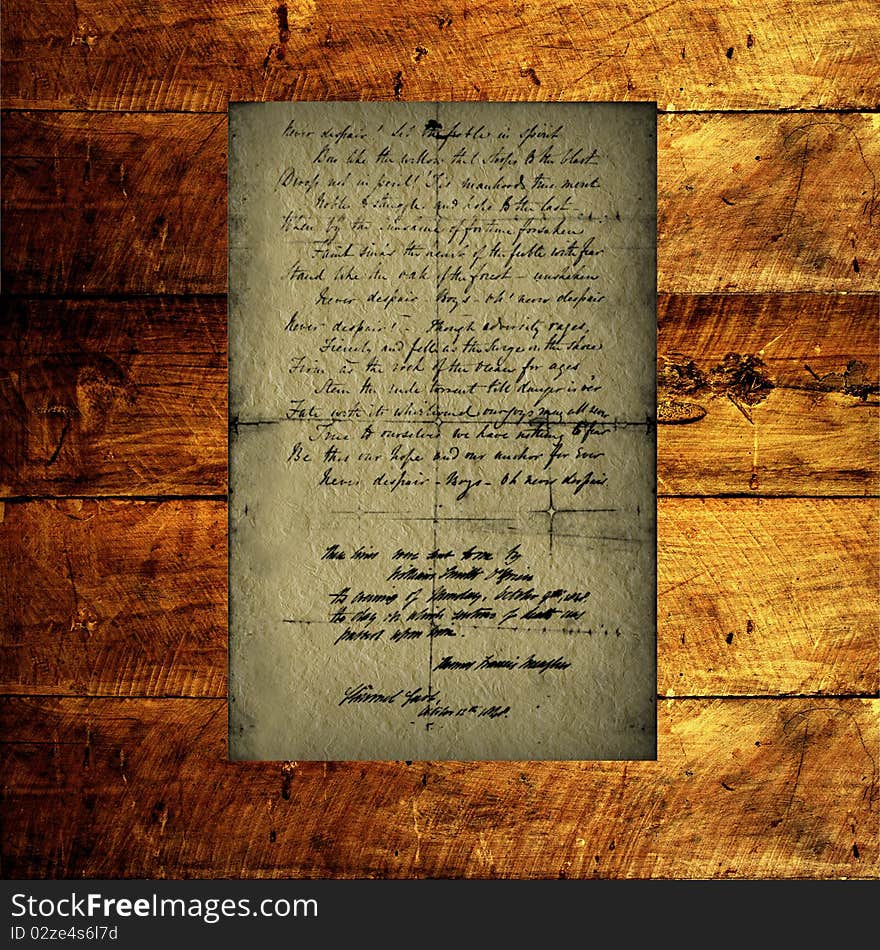 Never despair! Let the feeble in spirit
Bow like the willow that stoops to the blast
Droop not in peril! 'Tis manhood's true merit
Nobly to struggle and hope to the last
When by the sunshine of fortune forsaken
Faint sinks the heart of the feeble with fear
Stand like the oak of the forest - unshaken
Never despair - Boys - oh! never despair
Never despair! - Though adversity rages,
Fiercely and fell as the surge on the shore
Firm as the rock of the ocean for ages
Stem the rude torrent till danger is o'er
Fate with its whirlwind our joys may all
True to ourselves we have nothing to fear
Be this our hope and our anchor for ever
Never despair - Boys - Oh never despair.
These lines were sent to me by
William Smith O'Brien
the evening of Monday, October 9th, 1848
the day on which sentence of death was
passed upon him.
Thomas Francis Meagher
Clonmel Gaol,
October 1848.
StockFreeImages.com
ID 02ze4s6l7d